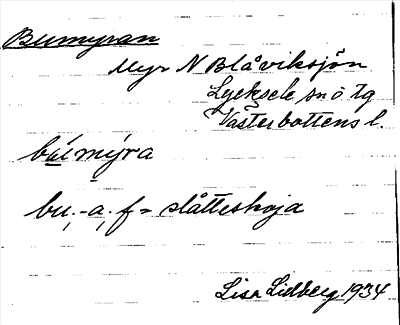 Bumyran
Myr N Blåviksjön
Lycksele sn o tg
Västerbottens l.
mýra
bu. -a. f = slåtteskoja
Lisa Lidberg 1934